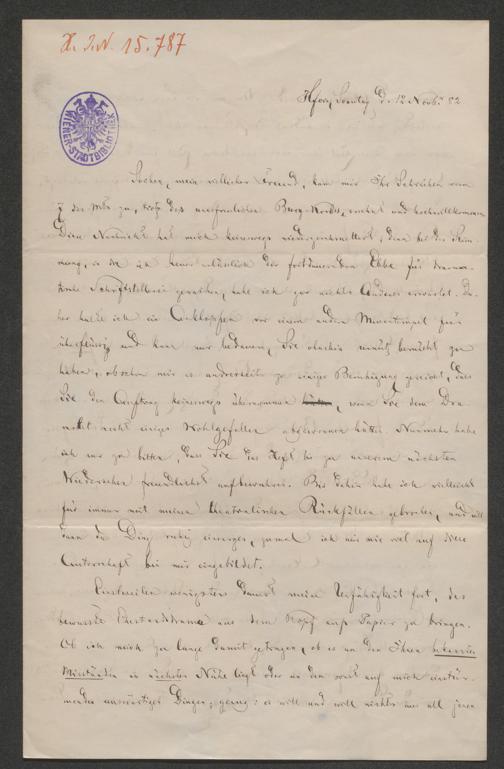 H. I. N. 15.787
WIENER-STADTBIBLIOTHEK
Sonntag d. 12 Novb. 82
Soeben, mein redlicher Freund, kam mir Ihr Schreiben vom
7 des Mts zu, trotz des unerfreulichen Burg- ersehnt und hochwillkommen.
Diese Nachricht hat mich keineswegs niedergeschmettert, denn bei der Stim-
mung, in die ich heuer der fortdauernden Ebbe für drama-
tische Schriftstellerei gerathen, habe ich gar nichts Anderes erwartet. Da-
her halte ich ein Anklopfen vor einem andern Musentempel für
überflüssig und kann nur bedauern, Sie ohnehin unnütz bemüht zu
haben, obschon mir es andrerseits zu einiger Beruhigung gereicht, daß
Sie den Auftrag keineswegs übernommen, wenn Sie dem Dra
nicht einiges Wohlgefallen abgewonnen hätten. Nunmehr habe
ich nur zu bitten, daß Sie das Heft bis zu unserem nächsten
Wiedersehen freundlichst aufbewahren. Bis dahin habe ich vielleicht
für immer mit meinen theatralischen Rückfällen gebrochen, und will
dann das Ding ruhig einsargen, zumal ich mir nie viel auf diese
Autorschaft bei mir eingebildet.
Einstweilen wenigstens dauert meine Unfähigkeit fort, das
bewusste aus dem Kopf aufs Papier zu bringen.
Ob ich mich zu lange damit getragen, ob es an den Ihnen bekannten
Misständen in nächster Nähe liegt oder an den sonst auf mich einstür-
menden auswärtigen Dingen; genug: es will und will nichts aus all jenen